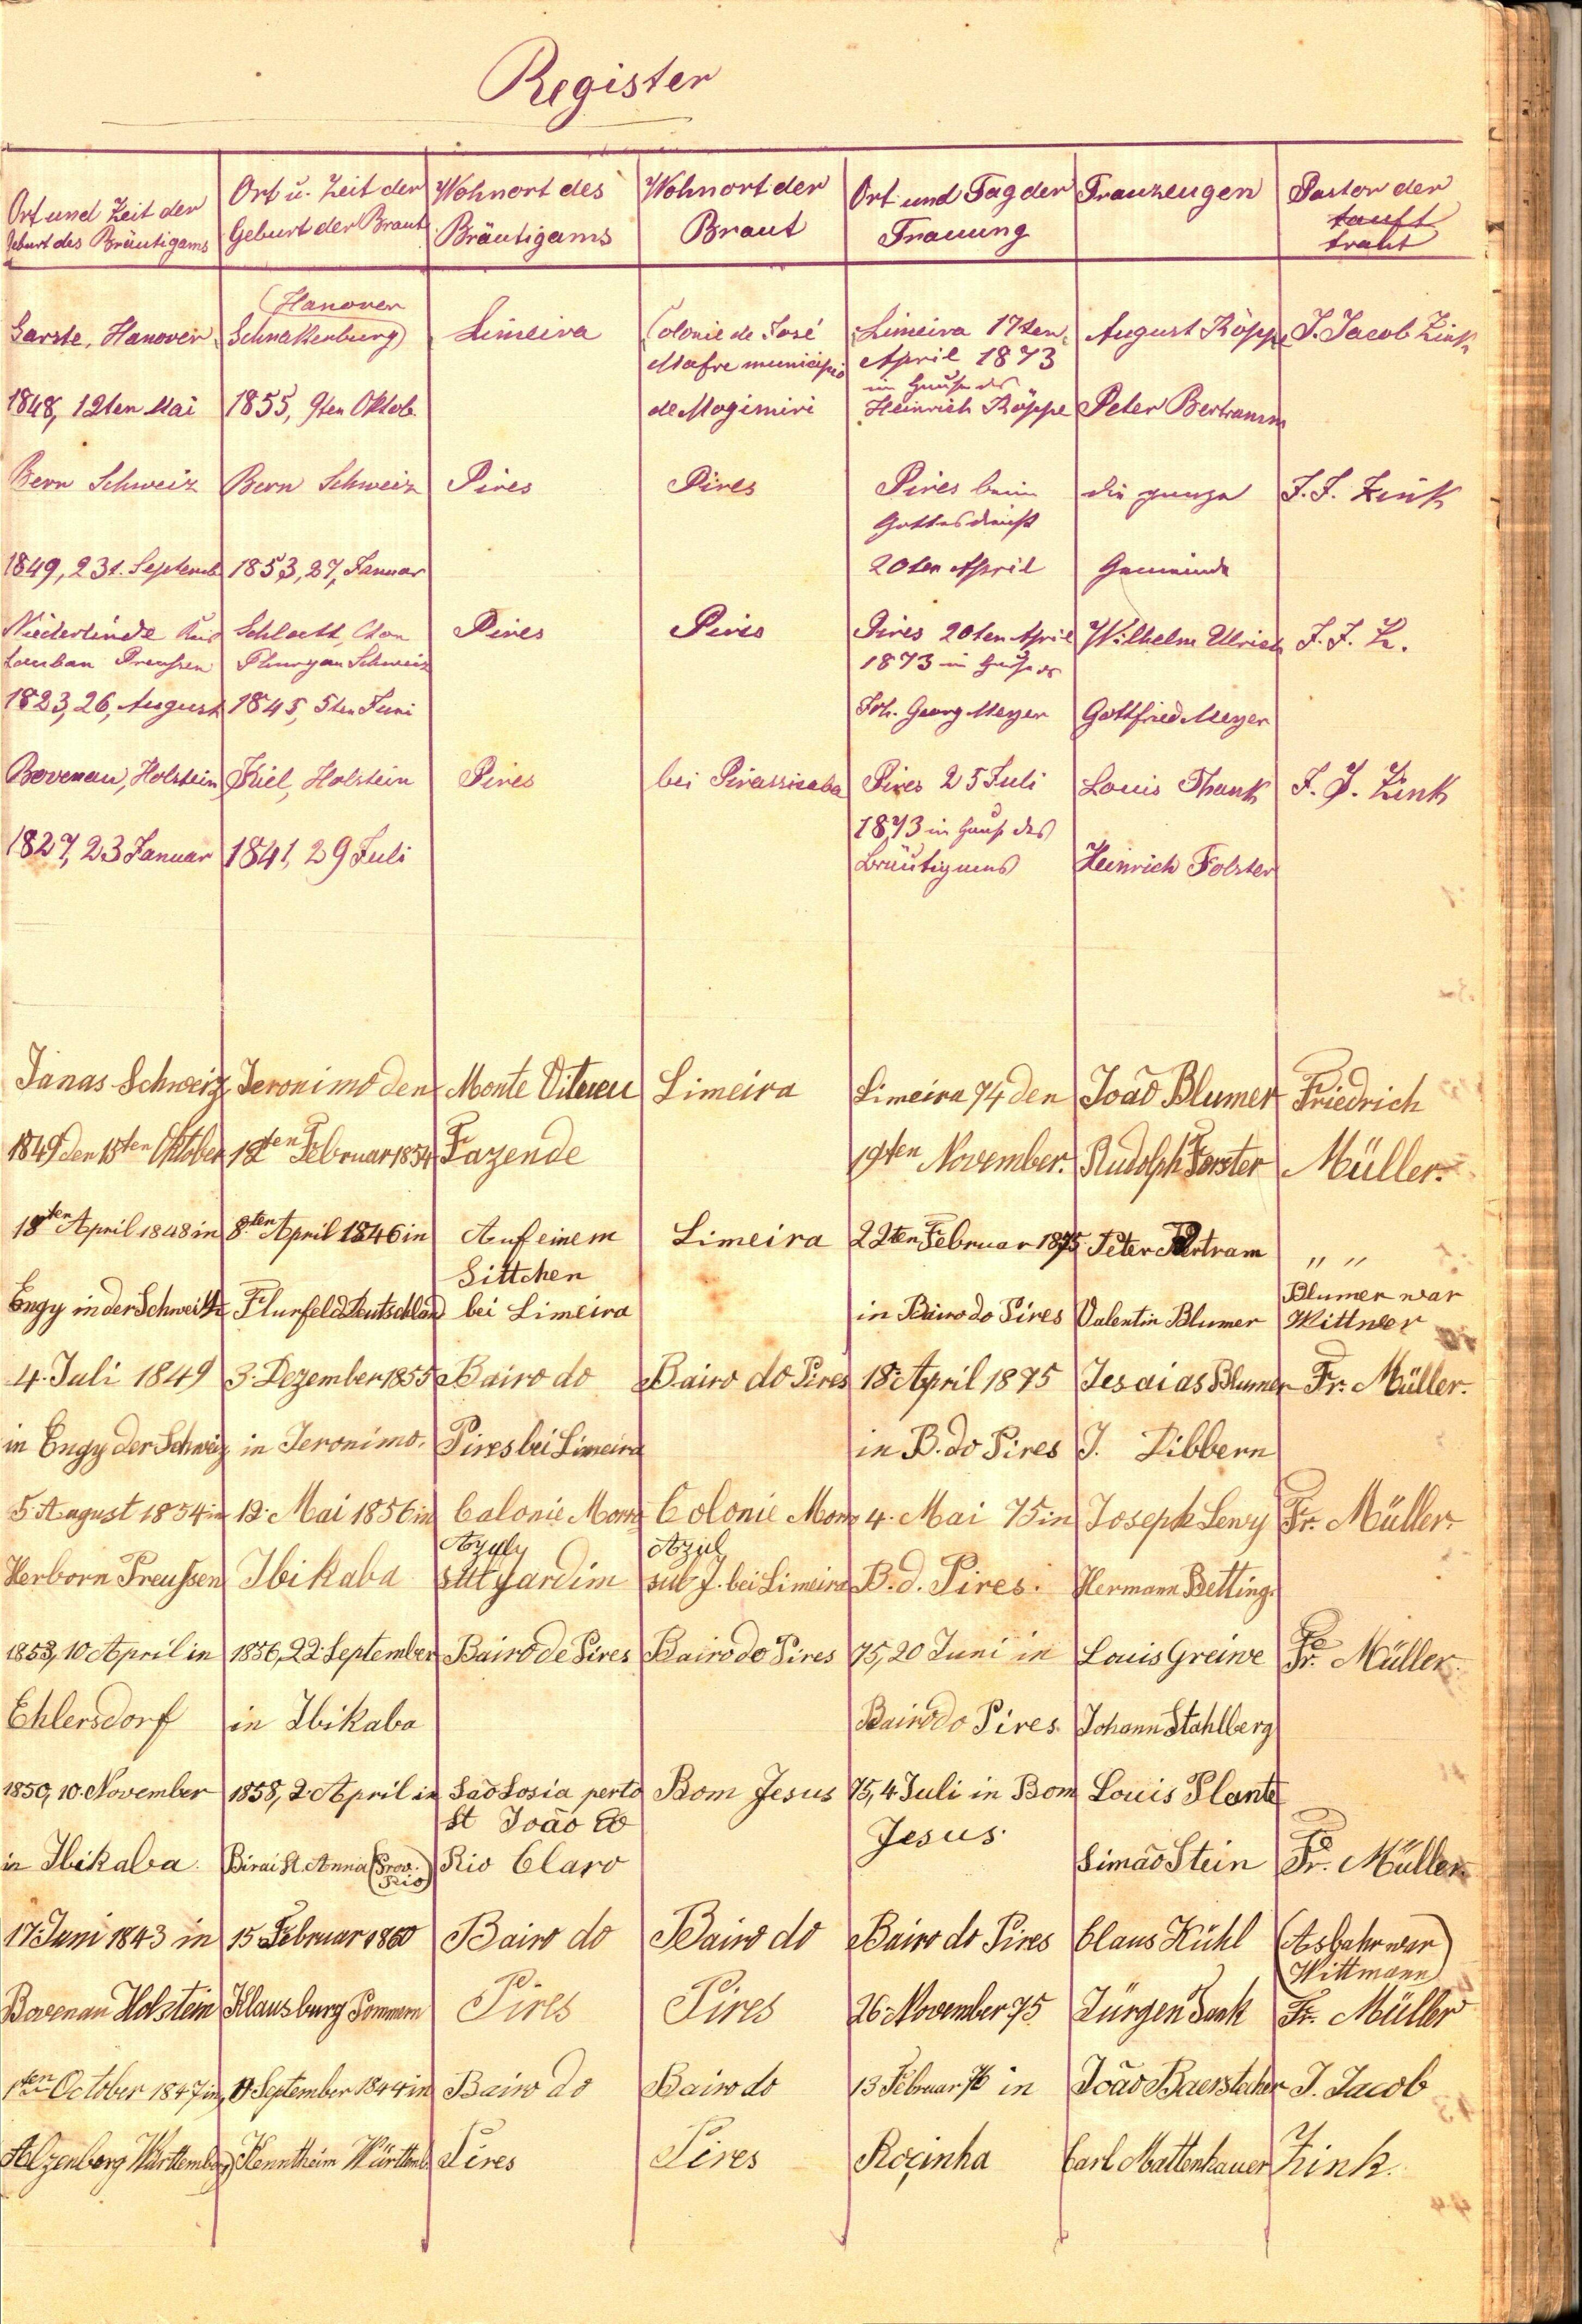 Register
Ort und Zeit der
Geburt des Bräutigams
Ort u. Zeit der
Geburt der Braut
Wohnort des
Bräutigams
Wohnort der
Braut
Ort und Tag der
Trauung
Trauzeugen
Pastor der
tauft
traut
Garste, Hanover
1848, 12ten Mai
(Hanover
Schnakenburg)
1855, 9ten Oktob.
Limeira
Colonie de José
Mafre municipio
de Mogimiri
Limeira 17ten
April 1873
im Hause des
Heinrich Köppe
August Köppe
Peter Bertramm
J. Jacob Zink
Bern Schweiz
1849, 23t. Septemb
Bern Schweiz
1853, 27, Januar
Pires
Pires
Pires beim
Gottesdienst
20ten April
die ganze
Gemeinde
J. J. Zink
Niederlinde
Lauban Preussen
1823, 26, August
Schlatt, Cton
Thurgau Schweiz
1845, 5ten Juni
Pires
Pires
Pires 20ten April
1873 im Hause des
Joh. Georg Meyer
Wilhelm Ulrich
Gottfried Meyer
J. J. Z.
Bovenau, Holstein
1827, 23 Januar
Kiel, Holstein
1841, 29 Juli
Pires
bei Pirassicaba
Pires 25 Juli
1873 in Hause des
Bräutigams
Louis Thank
Heinrich Folster
J. J. Zink
Janas Schweiz
1849 den 15ten Oktober
Jeronimo den
12ten Februar 1854
Monte
Fazende
Limeira
Limeira 74 den
19ten November.
João Blumer
Rudolph Forster
Friedrich
Müller.
18ten April 1848 in
Engy in der Schweitz
8ten April 1846 in
Flurfeld Deutschland
Auf einem
Sittchen
bei Limeira
Limeira
22ten Februar 1875
in Bairo do Pires
Peter Bertram
Valentin Blumer
" "
Blumer war
Wittwer
4. Juli 1849
in Engy der Schweiz
3. Dezember 1855
in Jeronimo.
Bairo do
Pires bei Limeira
Bairo do Pires
18. April 1875
in B. do Pires
Jesaias Blumer
J. Dibbern
Fr. Müller.
5. August 1854 in
Herborn Preußen
12. Mai 1856 in
Ibikaba
Calonie Morro
Azuly
sut Jardim
Colonie Morro
Azul
sub J. bei Limeira
4. Mai 75 in
B. d. Pires.
Joseph Lewy
Hermann Betting.
Fr. Müller.
1853, 10 April in
Ehlersdorf
1856, 22. September
in Ibikaba
Bairo de Pires
Bairo do Pires
75, 20 Juni in
Bairo do Pires.
Louis Greiwe
Johann Stahlberg
Fr. Müller.
1850, 10. November
in Ibikaba.
1858, 2. April in
Birai St. Anna (Prov. Rio)
Sao Losia perto
st João do
Rio Claro
Bom Jesus
75, 4. Juli in Bom
Jesus.
Louis Plante
Simão Stein
Fr. Müller.
17. Juni 1843 in
Bovenau Holstein
15. Februar 1860
Klausburg Pommern
Bairo do
Pires
Bairo do
Pires
Bairo do Pires
26. November 75
Claus Kühl
Jürgen Tank
(Asbahr war
Wittmann)
Fr. Müller
1ten October 1847 in
Alzenberg Württemberg
11 September 1844 in
Kenntheim Württemb.
Bairo do
Pires
Bairo do
Pires
13 Februar 76 in
Roçinha
João Baerstecher
Carl Mattenhauer
J. Jacob
Zink.